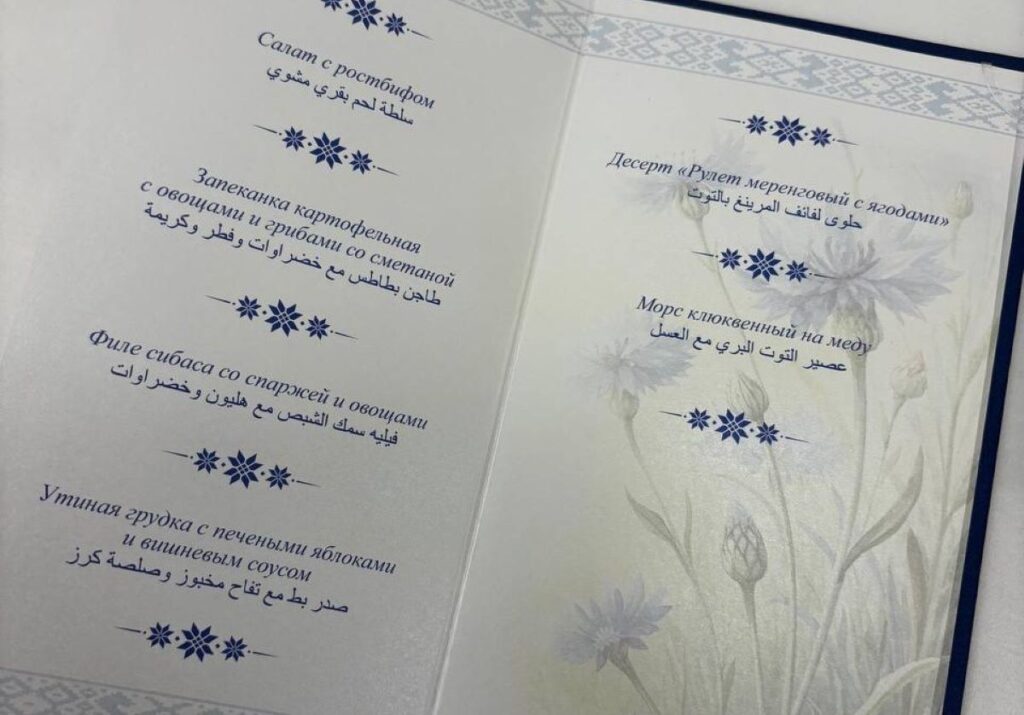 Салат с ростбифом
سلطة لحم بقري مشوي
Запеканка картофельная
с овощами и грибами со сметаной
طاجن بطاطس مع خضراوات وفطر وكريمة
Филе сибаса со спаржей и овощами
فيليه سمك الشبص مع هليون وخضراوات
Утиная грудка с печеными яблоками
и вишневым соусом
صدر بط مع تفاح مخبوز وصلصة كرز
Десерт «Рулет меренговый с ягодами»
حلوى لفائف المرينغ بالتوت
Морс клюквенный на меду
عصير التوت البري مع العسل